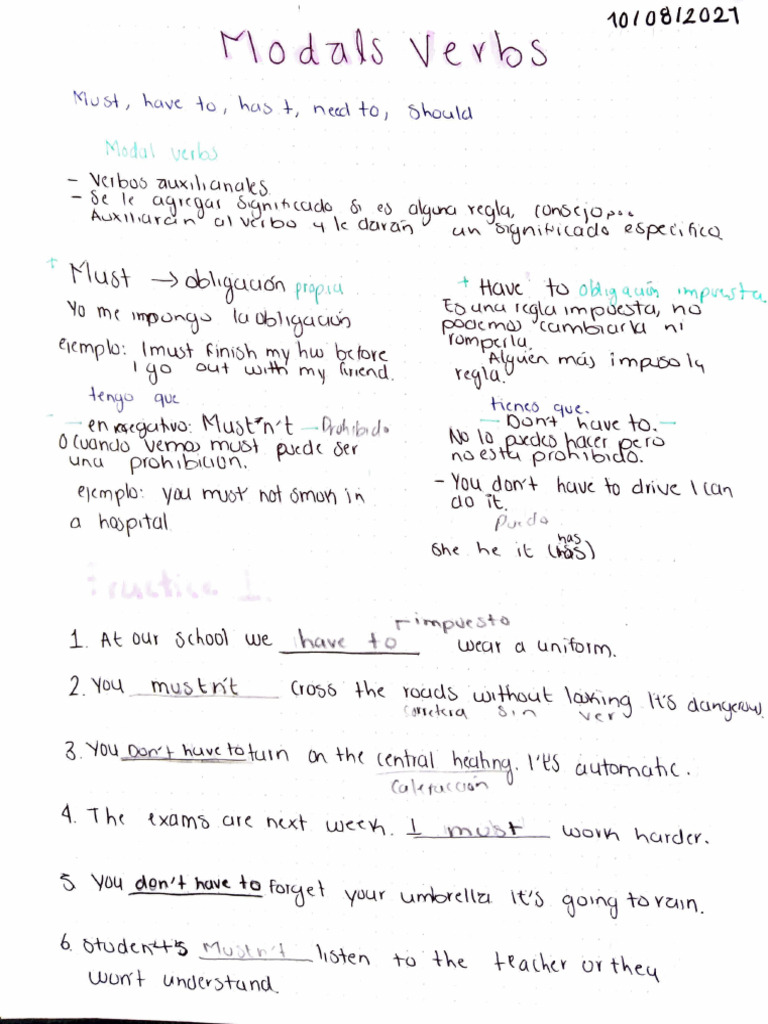 10/08/2021
Modals Verbs
Must, have to, has t, need to, should
Modal verbs
- Verbos auxilianales
- Se le agregar significado si es alguna regla, consejo...
Auxiliarán al verbo y le darán un significado especifico
+ Must → obligación propia
Yo me impongo la obligación
ejemplo: I must finish my hw before
I go out with my friend.
tengo que
- en negativo: Mustn't - Prohibido
O cuando vemos must puede ser
una prohibicion.
ejemplo: you must not smok in
a hospital
+ Have to obligación impuesta.
Es una regla impuesta, no
podemos cambiarla ni
romperla.
Alguien más impuso la
regla.
tienes que.
- Don't have to. -
No lo puedes hacer pero
no esta prohibido.
- You don't have to drive I can
do it.
Puedo
has
She he it (has)
Practice 1.
impuesto
1. At our school we have to wear a uniform.
2. You mustn't cross the roads without looking It's dangerous.
carretera sin ver
3. You Don't have to turn on the central heating. I'ts automatic.
Calefacción
4. The exams are next week. I must work harder.
5 You don't have to forget your umbrella it's going to rain.
6. Students Mustn't listen to the teacher or they
won't understand.